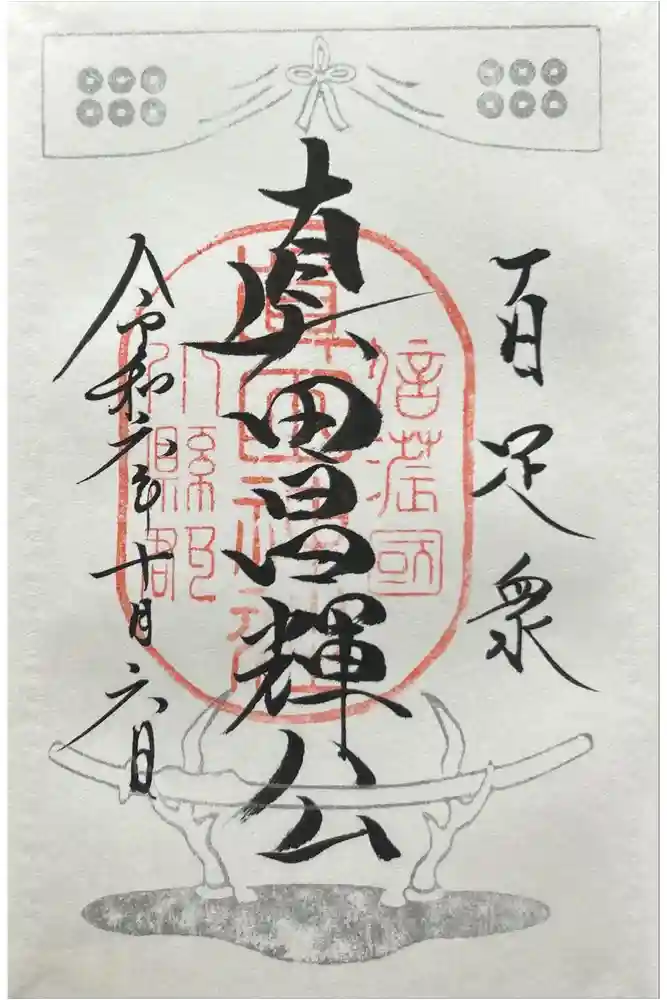 百足衆
真田昌輝公
令和元年十月六日
信濃國
眞田神社
小縣郡